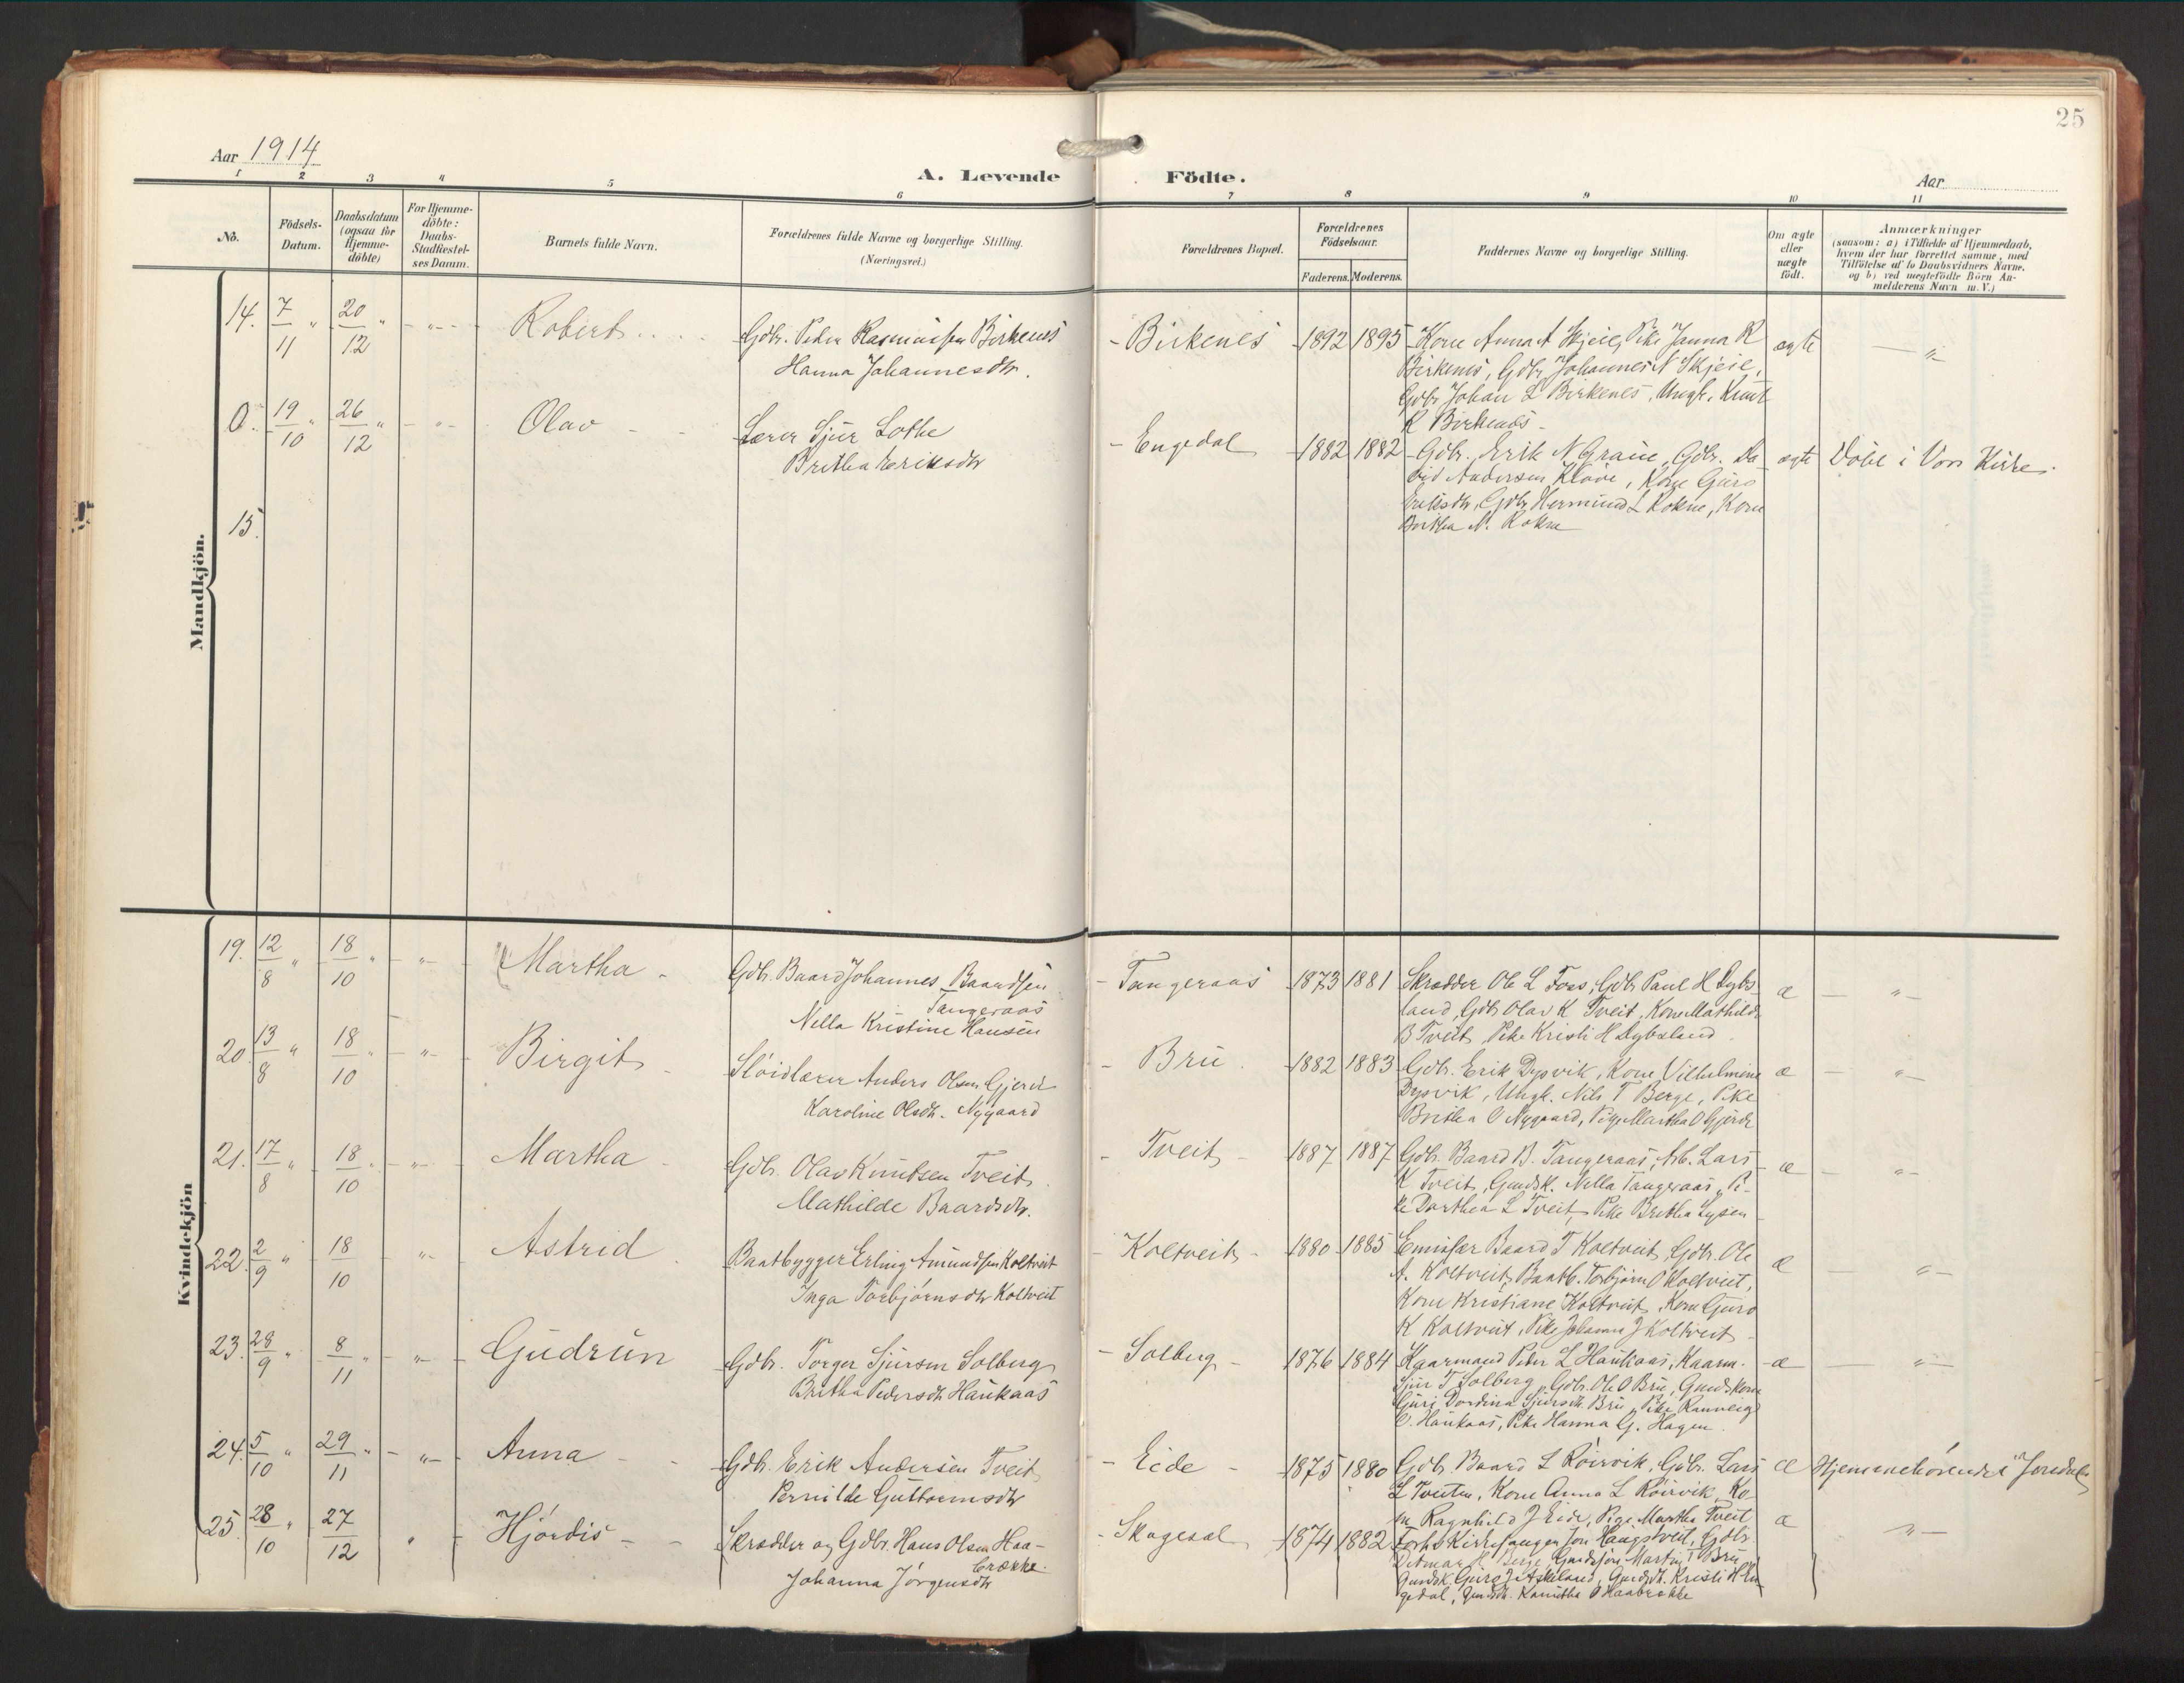 25
Aar 1914
A. Levende Födte.
Aar
1 2 3 4 5 6 7 8 9 10 11
No.
Födsels-
Datum.
Daabsdatum
(ogsaa for
Hjemme-
döbte)
For Hjemme-
döbte:
Daabs-
Stadfæstel-
ses Datum.
Barnets fulde Navn.
Forældrenes fulde Navne og borgerlige Stilling.
(Næringsvei.)
Forældrenes Bopæl.
Forældrenes
Födselsaar.
Faderens. Moderens.
Faddernes Navne og borgerlige Stilling.
Om ægte
eller
uægte
födt.
Anmærkninger
(saasom: a) i Tilfælde af Hjemmedaab,
hvem der har forrettet samme, med
Tilföielse af to Daabsvidners Navne.
og b) ved uægtefödte Börn An-
melderens Navn m. V.)
Mandkjön.
14. 7/11 " 20/12 " - " - Robert
Gdbr. Peder Rasmussen Birkenes
Hanna Johannesdtr.
- Birkenes 1892 1895
Kone Anna A Skjeie, Pike Janna R
Birkenes, Gdbr. Johannes N Skjeie,
Gdbr Johan L Birkenes, Ungk. Knut
R Birkenes -
ægte - " -
0. 19/10 " 26/12 " - " - Olav -
Lærer Sjur Lothe
Britha Eriksdtr
- Engedal 1882 1882
Gdbr. Erik N Graue, Gdbr. Da-
vid Andersen Klöve, Kone Guro
Eriksdtr, Gdbr Hermund L Rokne, Kone
Britha N. Rokne
ægte Döbt i Voss Kirke.
15.
Kvindekjön
19. 12/8 " 18/10 " - " - Martha -
Gdbr. Baard Johannes Baardsen
Tangeraas
Nella Kristine Hansen
- Tangeraas 1873 1881
Skrædder Ole L Foss, Gdbr Paul H Dybs-
land, Gdbr Olav K Tveit, Kone Mathilde
B Tveit, Pike Kristi H Dybsland
æ - " -
20. 13/8 " 18/10 " - " - Birgit -
Slöidlærer Anders Olsen Gjerde
Karoline Olsdtr. Nygaard
- Bru 1882 1883
Gdbr. Erik Dysvik, Kone Vilhelmine
Dysvik, Ungk. Nils T Berge, Pike
Britha O Nygaard, Pige Martha O Gjerde
æ - " -
21. 17/8 " 18/10 " - " - Martha -
Gdbr. Olav Knutsen Tveit
Mathilde Baardsdtr.
- Tveit - 1887 1887
Gdbr. Baard B. Tangeraas, Arb. Lars
K Tveit, Gaardsk. Nella Tangeraas, Pi-
ke Dorthea L Tveit, Pike Britha Lysen
æ - " -
22. 2/9 " 18/10 " - Astrid
Baatbygger Erling Amundsen Koltveit
Inga Torbjörnsdtr Koltveit
- Koltveit - 1880 1885
Emissær Baard T Koltveit, Gdbr. Ole
A. Koltveit, Baatb. Torbjörn O Koltveit,
Kone Kristiane Koltveit, Kone Guro
K Koltveit, Pike Johanna J Koltveit -
æ - " -
23. 28/9 " 8/11 " - " - Gudrun
Gdbr. Torger Sjursen Solberg
Britha Pedersdtr Haukaas
- Solberg - 1876 1884
Kaarmand Peder L Haukaas, Kaarm.
Sjur T Solberg, Gdbr. Ole O Bru, Gaardskone
Guri Dordina Sjursdtr Bru, Pike Rannveig
Haukaas, Pike Hanna G. Hagen
æ - " -
24. 5/10 " 29/11 " - " - Anna -
Gdbr. Erik Andersen Tveit
Pernilde Guttormsdtr
- Eide - 1875 1880
Gdbr. Baard L Röirvik, Gdbr. Lars
L Tveiten, Kone Anna L Röirvik, Ko-
ne Ragnhild J Eide, Pige Martha Tveit
æ Hjemmehörende i Jondal
25. 28/10 " 27/12 " - Hjördis -
Skrædder og Gdbr. Hans Olsen Haa-
brække
Johanna Jörgensdtr
- Skogesal 1874 1882
Forhv Kirkesanger Jon Haugstveit, Gdbr.
Ditmar Berge, Gaardsjön Martin Bru
Gaardsk. Guro J Askeland, Gaardsdt. Kristi H En-
gedal, Gaardsdt. Kanutha O Haabrække
æ - " -